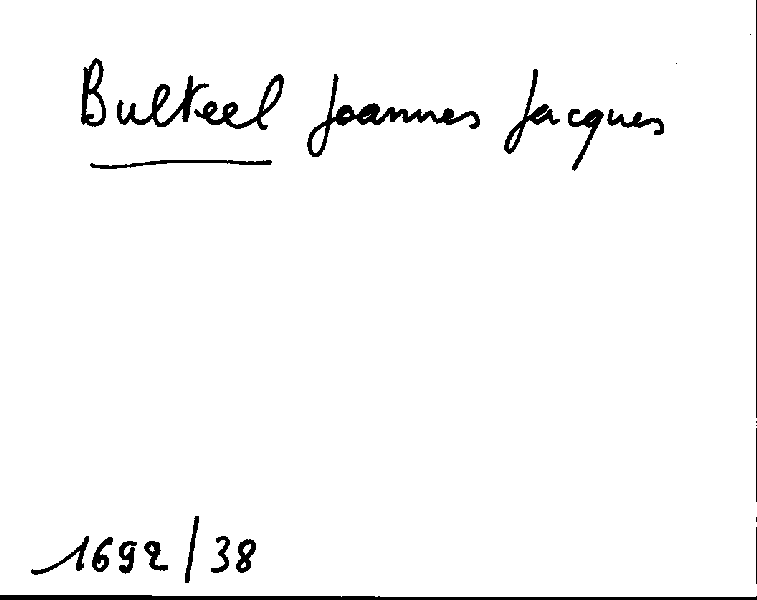 Bulteel Joannes Jacques
1692/38